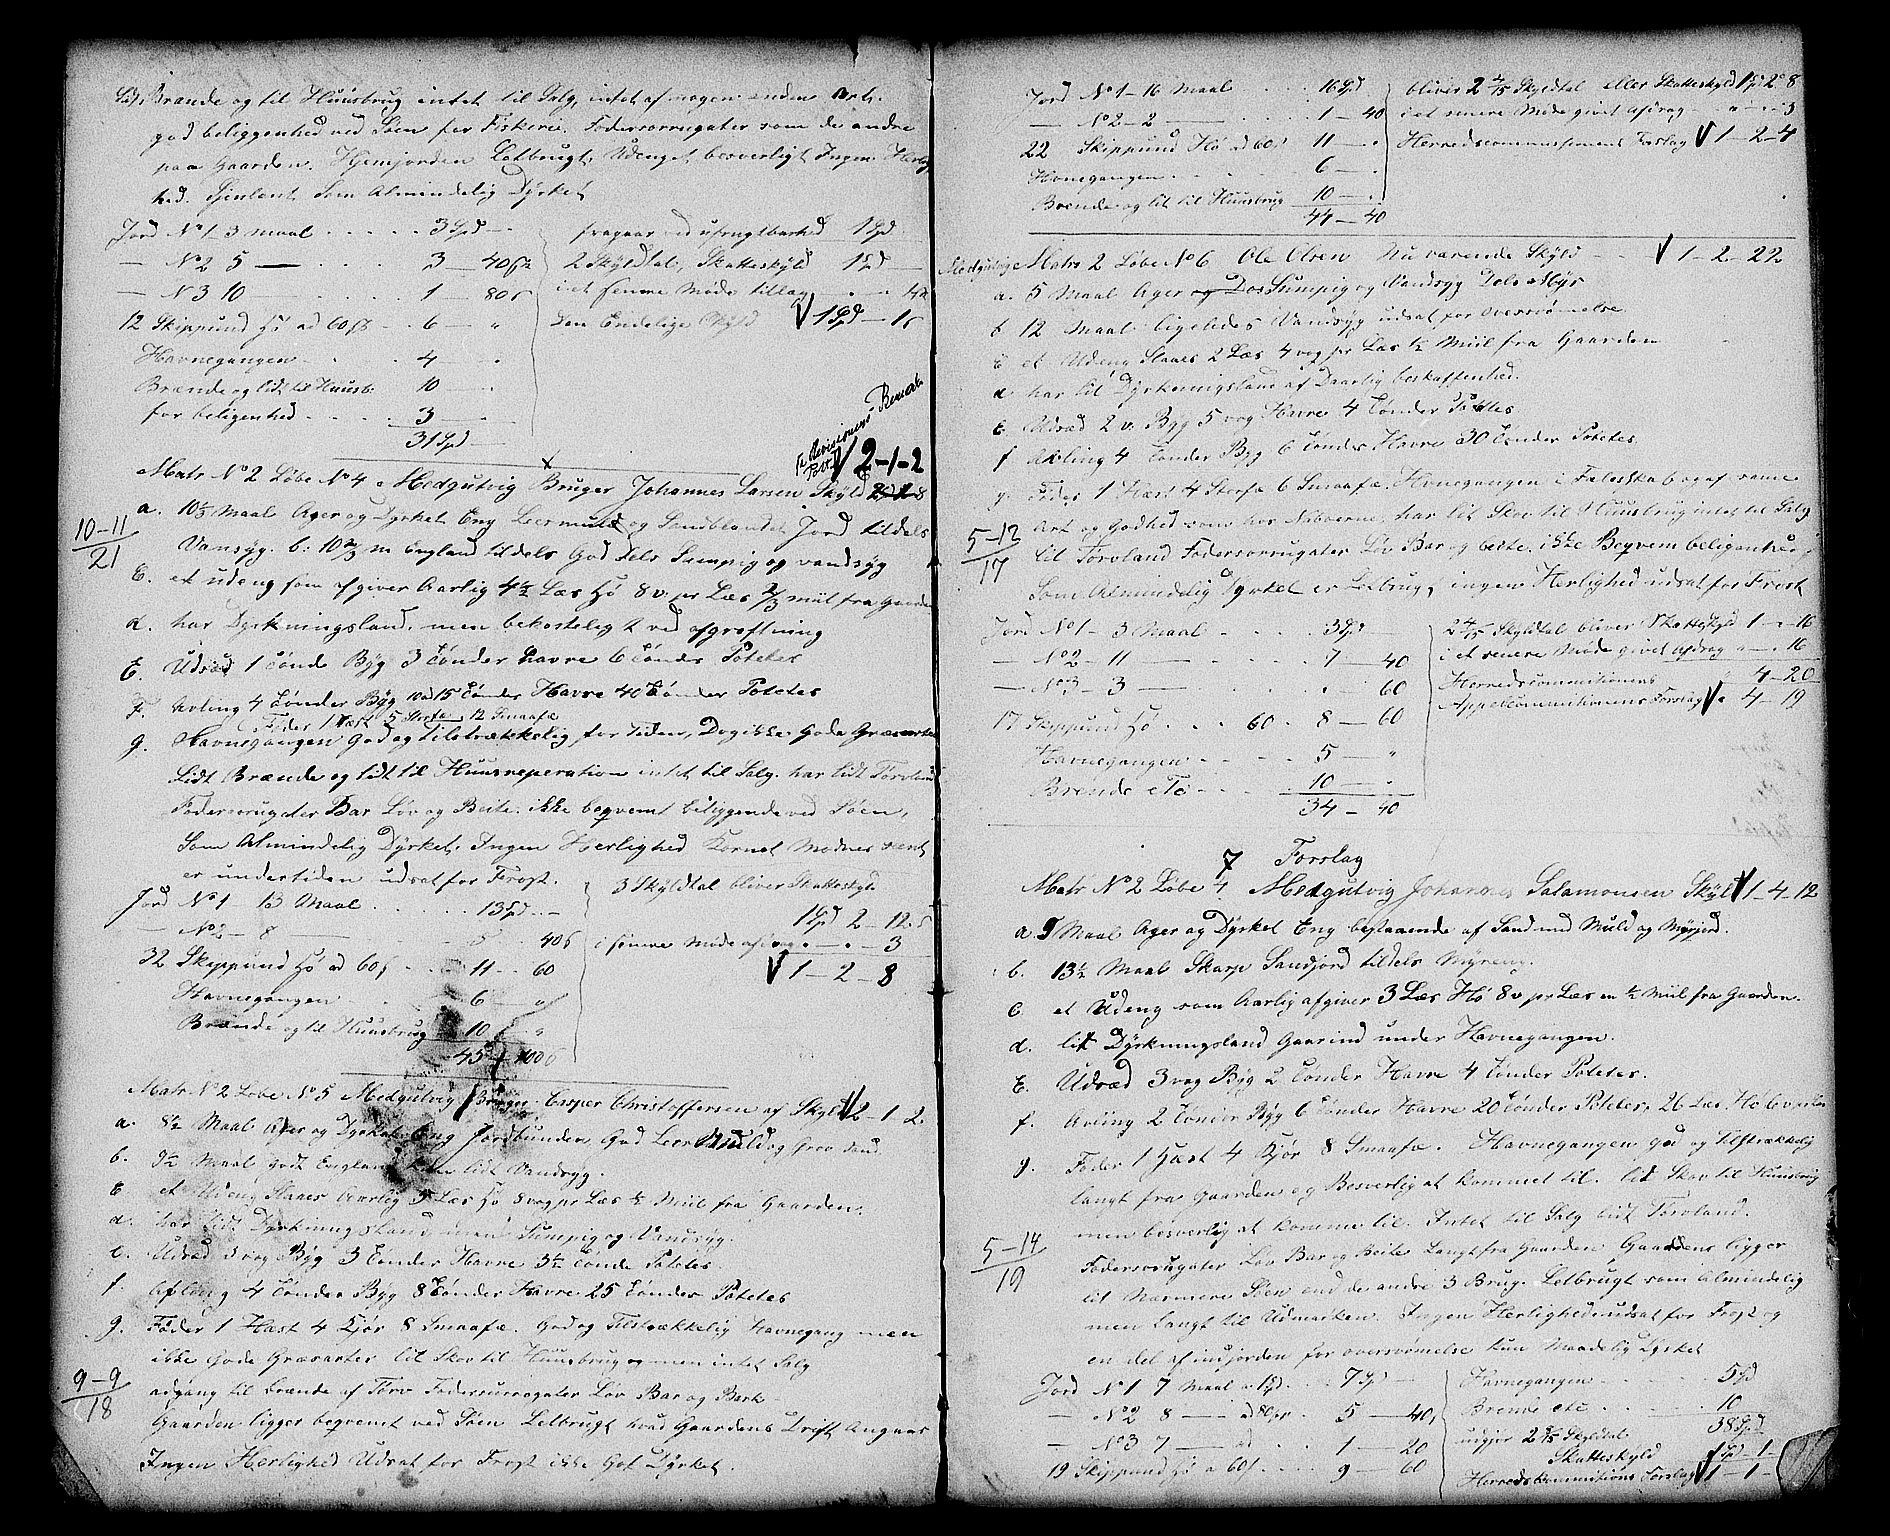 Brænde og til Huusbrug intet til Salg, intet af nogen anden Art.
god beliggenhed ved Søen for Fiskerie. Fodersorrugater som de andre
paa Gaarden. Hjemjorden Letbrugt, Udenget besverligt Ingen Herlig
hed. Tjenlent Som Almindelig Dyrket
Jord No 1 - 3 Maal 3 Spd
— No 2 5 — 3 — 40 sk
— No 3 10 — 1 — 80
12 Skippund Hø ad 60 sk 6 — "
Havnegangen 4
Brænde og lidt til Huusb. 10
for beligenhed 3
31 Spd
fragaar ved ufrugtbarhed 1 Spd
2 Skyldtal, Skatteskyld 1 Spd
i et senere Møde tillag
Den Endelige Skyld 1 Spd — 1
2-1-2
Matr No 2 Løbe No 4 Medgutvig Bruger Johannes Larsen Skyld
a. 10½ Maal Ager og Dyrket Eng Leermuld og Sandblandet Jord tildels
Vansyg. b: 10⅔ m England tildels God dels Sumpig og vandsyg
c. et udeng som afgiver Aarlig 4½ Læs Hø 8 v pr Læs ⅔ mil fra Gaarden
10-11
21
d. har Dyrkningsland, men bekostelig ved afgrøftning
E. Udsæd 1 Tønde Byg 3 Tønder havre 6 Tønder Poteter
F. avling 4 Tønder Byg 10 ad 15 Tønder Havre 40 Tønder Poteter
Føder 1 Hæst 5 Storfæ 12 Smaafæ
g. Havnegangen God og tilstrækkelig for tiden, Dog ikke Gode Græsarter
Lidt Brænde og lidt til Huusreperation intet til Salg. har lidt Torvland
Fodersorrugater Bar Løv og Beite. ikke beqvemt beliggende ved Søen,
Som Almindelig Dyrket. Ingen Herlighed Kornet Modnes sent
er undertiden udsat for Frost.
Jord No 1 - 13 Maal 13 Spd
— No 2 - 8 — 5 — 40
32 Skippund Hø ad 60 11 — 60
Havnegangen 6
Brænde og til Huusbrug 10 "
45
3 Skyldtal bliver Skatteskyld
1 Spd 2 - 12
i senere Møde afdrag — 3
1 - 2 - 8
Matr No 2 Løbe No 5 Medgutvig Bruger Casper Christoffersen af Skyld 2-1-2.
a. 8½ Maal Ager og Dyrket Eng Jordbunden God Leer Muld og Grov Sand.
b. 9½ Maal godt England lidt Vandsyg.
C et Udeng Slaaes Aarlig 5 Læs Hø 8 vog pr Læs ½ Miil fra Gaarden.
d. har lidt Dyrkningsland men Sumpig og Vandsyg.
e. Udsæd 3 vog Byg 3 Tønder Havre 3½ Tønde Poteter.
f. Afling 4 Tønder Byg 8 Tønder Havre 25 Tønder Poteter
g. Føder 1 Hæst 4 Kjør 8 Smaafæ. God og Tilstrækkelig Havnegang men
ikke Gode Græsarter lit Skov til Huusbrug men intet Salg
9-9
18
adgang til brænde af Torv Fodersurrogater Løv Bar og Bark
Gaarden ligger beqvemt ved Søen Letbrugt hvad Gaardens Drift Angaar
Ingen Herlighed Udsat for Frost ikke Got Dyrket.
Jord No 1 - 16 Maal 16 Spd
— No 2 - 2 — 1 — 40
22 Skippund Hø ad 60 11 —
Havnegangen 6 —
Brænde og lit til Huusbrug 10 —
44 — 40
bliver 2 4/15 Skyldtal eller Skatteskyld 1 Spd 2 8
i et senere Møde givet afdrag 3
Herredscommissionens Forslag 1-2-4
Medgutvig Matr 2 Løbe No 6 Ole Olsen Nu værende Skyld 1-2-22
a. 5 Maal Ager Sumpig og Vandsyg Dels Myr
b 12 Maal ligeledes Vandsyg udsat for oversvømelse
C et Udeng Slaaes 2 Læs 4 vog pr Læs ½ Miil fra Gaarden
d har lit Dyrkningsland af Daarlig beskaffenhed.
E. Udsæd 2 v. Byg 5 vog Havre 4 Tønder Poteter
f Avling 4 Tønder Byg 6 Tønder Havre 30 Tønder Poteter
g. Føder 1 Hæst 4 Storfæ 6 Smaafæ. Havnegangen i Feleskab og af samme
Art og Godhed som hos Naboerne, har lit Skov til Huusbrug intet til Salg
5-12
17
lit Torvland Fodersorrugater Løv Bar og beite. ikke Beqvem beligenhed
Som Almindelig Dyrket er Letbrug, ingen Herlighed udsat for Frost
Jord No 1 - 3 Maal 3 Spd
— No 2 - 11 — 7 — 40
— No 3 - 3 — 60
17 Skippund Hø 60 8 — 60
Havnegangen 5 — "
Brende etc 10 —
34 — 40
2 4/15 Skyldtal bliver Skatteskyld 1 - 16
i et senere Møde givet afdrag 16
Herredscommitionens 4-20
Appelcommitionens Forslag 4-19
7 Forslag
Matr No 2 Løbe 7 Medgutvig Johannes Salamonsen Skyld 1-4-12
a. 9 Maal Ager og Dyrket Eng bestaaende af Sand med Muld og Myrjord.
b. 13½ Maal Skarp Sandjord tildels Myreng.
C. et Udeng som Aarlig afgiver 3 Læs Hø 8 v pr Læs en ½ Miil fra Gaarden.
d. lit Dyrkningsland Gaarind under Havnegangen.
E. Udsæd 3 vog Byg 2 Tønder Havre 4 Tønder Poteter.
f. Avling 2 Tønder Byg 6 Tønder Havre 20 Tønder Poteter, 26 Læs Hø
g. Føder 1 Hæst 4 Kjør 8 Smaafæ. Havnegangen god og tilstrækkelig
langt fra Gaarden og Besverlig at kommet til. lit Skov til Huusbrug
men besverlig at komme til. Intet til Salg lidt Torvland.
5-14
19
Fodersorugater Løv Bar og Beite Langt fra Gaarden, Gaarden ligger
lit Nærmere Søen end de andre 3 Brug. Letbrugt som Almindelig
men langt til Udmarken. Ingen Herlighed udsat for Frost og
en del af indjorden for oversvømelse kun Maadelig Dyrket
Jord No 1 7 Maal a 1 Spd 7 Sp
— No 2 8 — ad 80 5 — 40
— No 3 7 — ad 1 — 20
19 Skippund Hø a 60 9 — 60
Havnegangen 5 Spd
Brende etc 10
38 Spd
udgjør Skyldtal
Skatteskyld 1 Spd - 1 -
Herredskommitions Forslag 1-1-